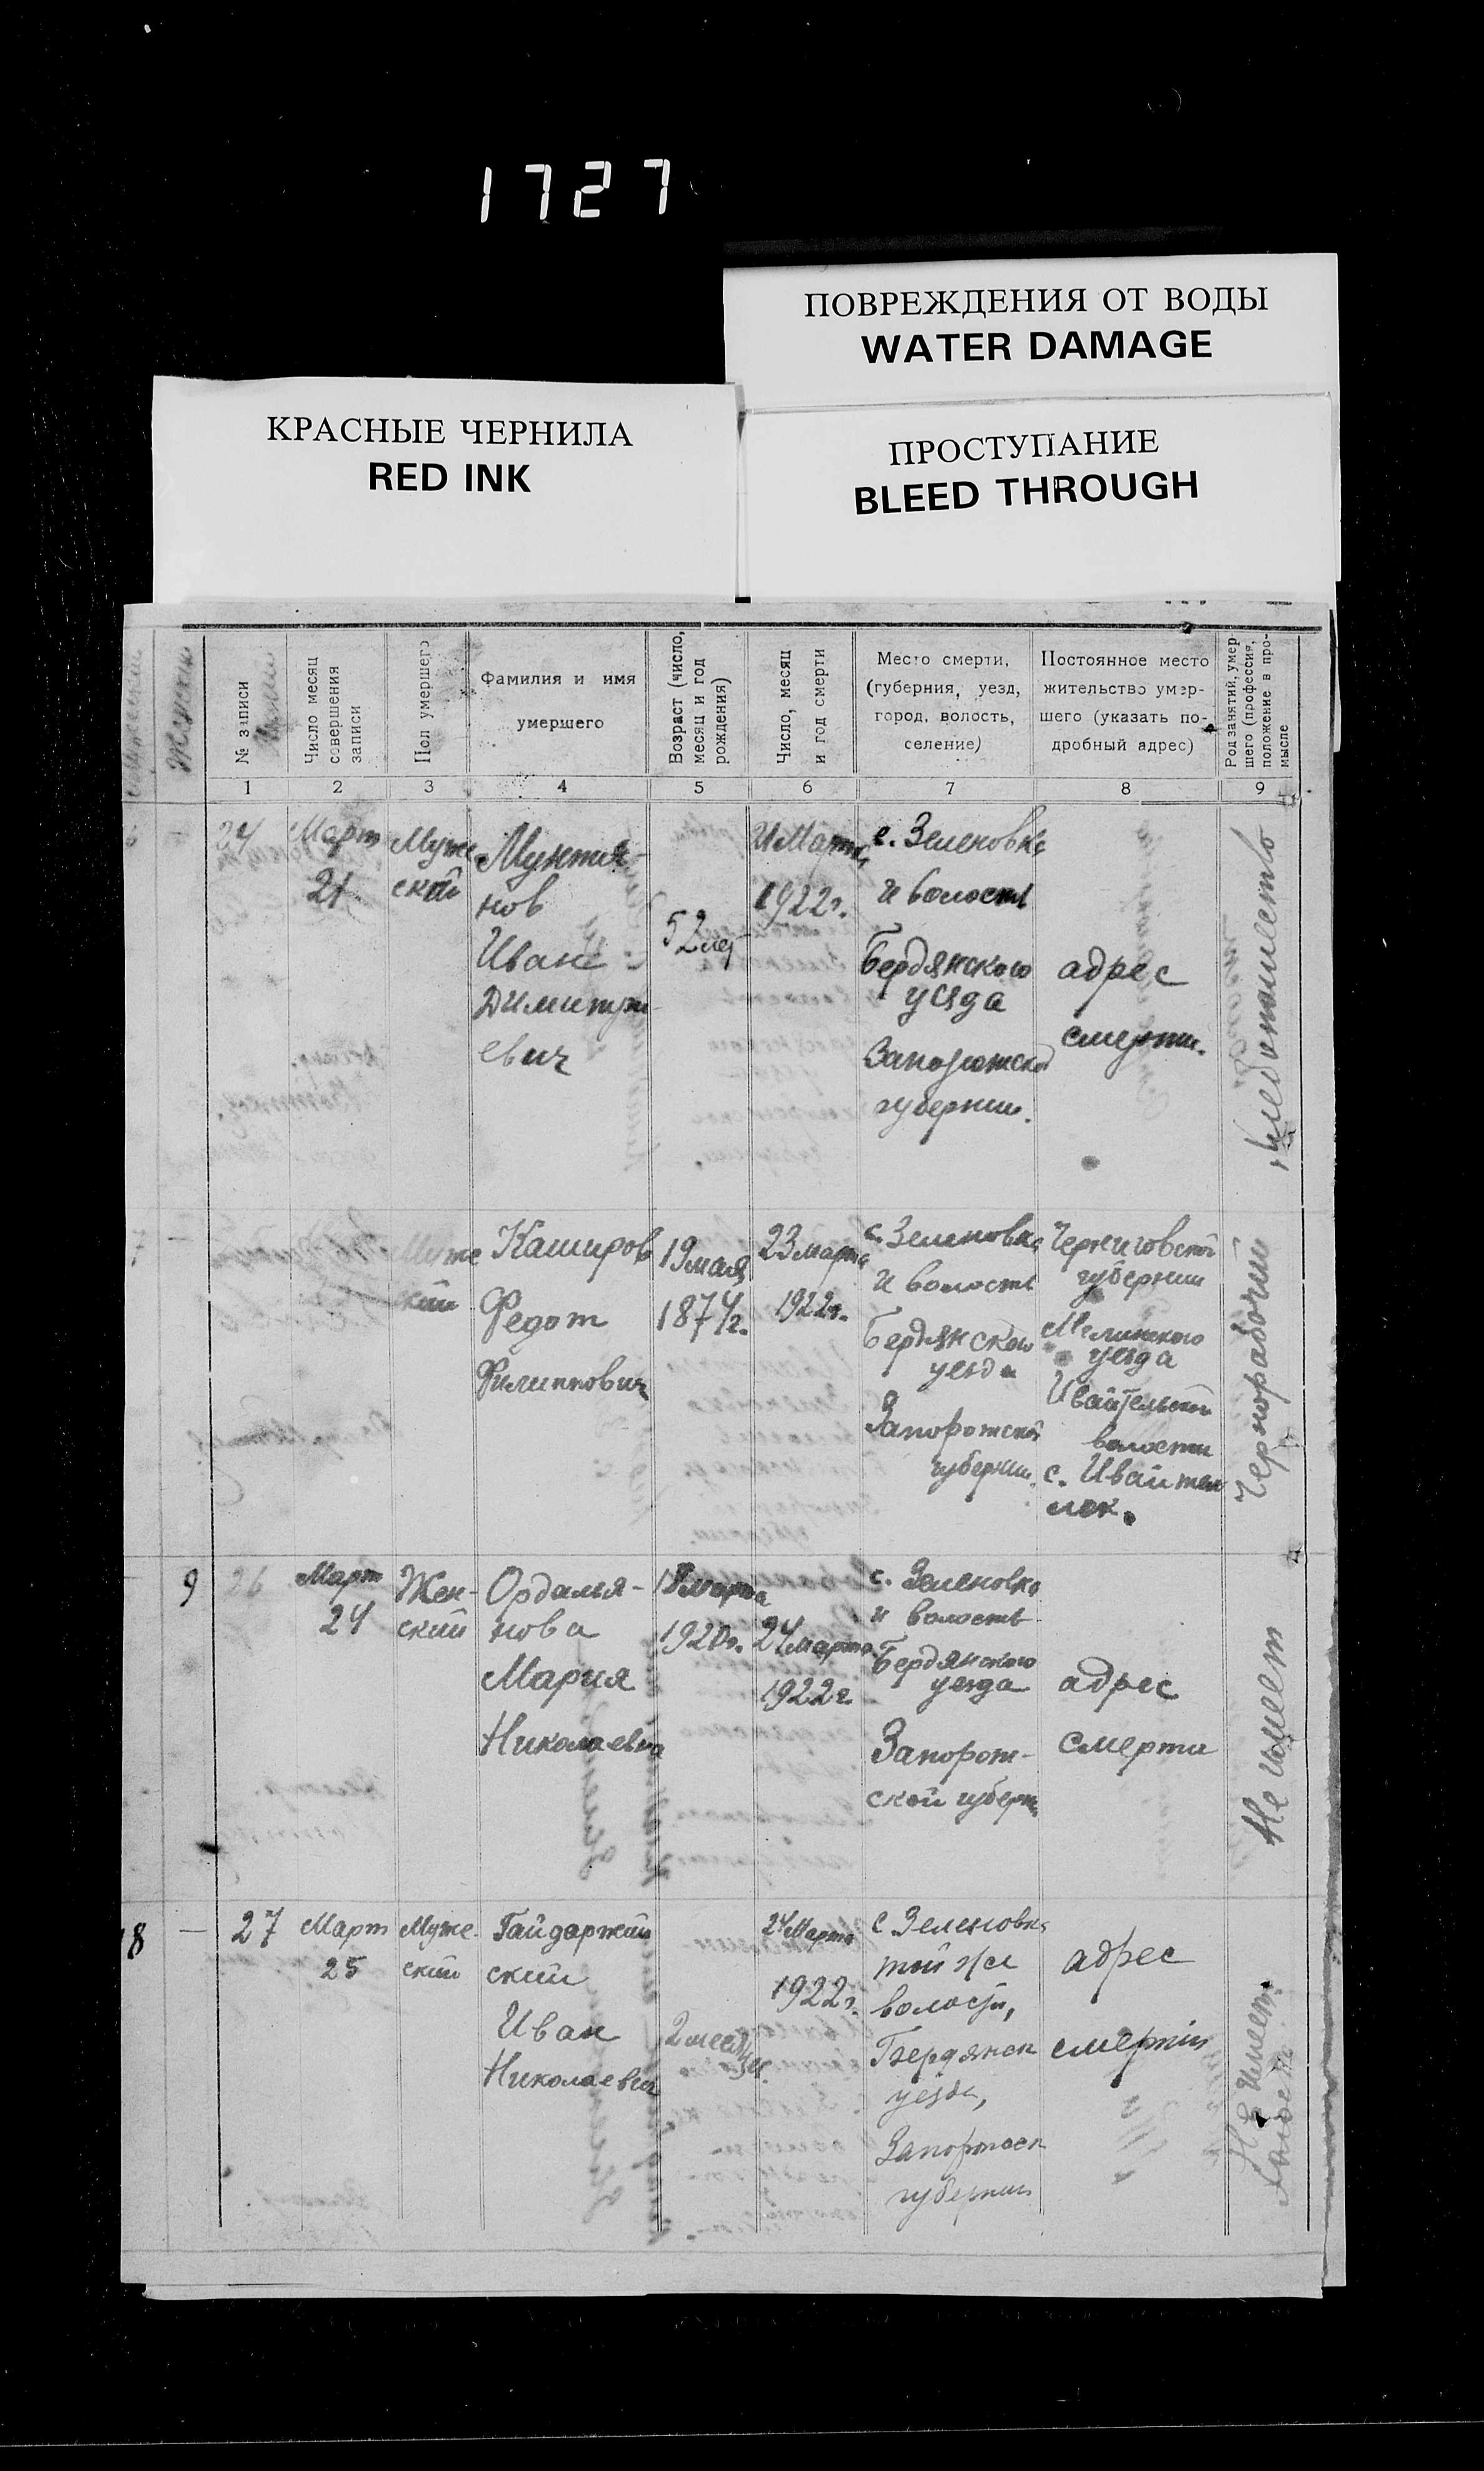 1727
ПОВРЕЖДЕНИЯ ОТ ВОДЫ
WATER DAMAGE
КРАСНЫЕ ЧЕРНИЛА
RED INK
ПРОСТУПАНИЕ
BLEED THROUGH
№ записи
Число месяц
совершения
записи
Пол умершего
Фамилия и имя
умершего
Возраст (число,
месяц и год
рождения)
Число, месяц
и год смерти
Место смерти,
(губерния, уезд,
город, волость,
селение)
Постоянное место
жительство умер-
шего (указать по-
дробный адрес)
Род занятий, умер-
шего (профессия,
положение в про-
мысле
1 2 3 4 5 6 7 8 9
24
Март
21
Муже
ский
Мунтя-
нов
Иван
Димитри-
евич
52 лет
Марта
1922г.
с. Зеленовка
и волость
Бердянского
уезда
Запорожской
губернии.
адрес
смерти.
Хлебопашество
Муже
ский
Каширов
Федот
Филиппович
19 мая
1874г.
23 марта
1922г.
с. Зеленовка
и волость
Бердянского
уезда
Запорожской
губернии.
Черниговской
губернии
Мглинского
уезда
волости
с.
Чернорабочий
9
26
Март
24
Жен-
ский
Ордалья-
нова
Мария
Николаевна
18 марта
1920г.
24 марта
1922г.
с. Зеленовка
и волость
Бердянского
уезда
Запорож-
ской губерн.
адрес
смерти
Не имеет
8
27
Март
25
Муже-
ский
Гайдаржий
ский
Иван
Николаевич
2 месяца
24 Марта
1922г.
с Зеленовка
той же
волости,
Бердянск
уезда,
Запорожск
губернии
адрес
смерти
Не имеет